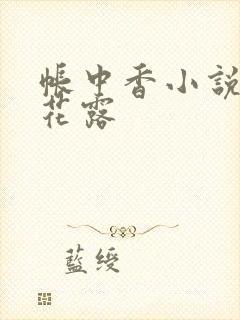 帳中香小說
花露
藍綬